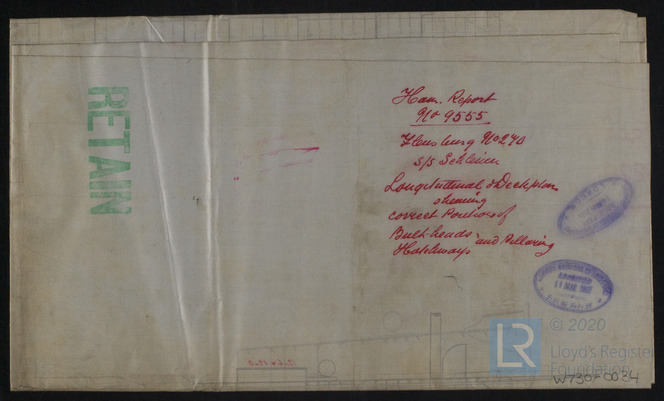 RETAIN
Ham. Report
No 9555
Flensburg No 240
S/S Schleswig
Longitudinal & Deckplan
showing
correct Positions of
Bulkheads and Pillaring
Hatchways
11 MAR
LR
© 2020
Lloyd's Register
Foundation
W730-0034